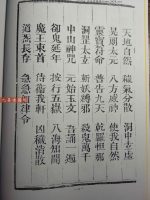 天地自然 穢氣分散 洞中玄虛
晃朗太元 八方威神 使我自然
靈寶符命 普告九天 乾羅答那
洞罡太玄 斬妖縛邪 殺鬼萬千
中山神咒 元始玉文 吾誦一遍
卻鬼延年 按行五嶽 八海知聞
魔王束首 侍衛我軒 凶穢消散
道炁長存 急急如律令